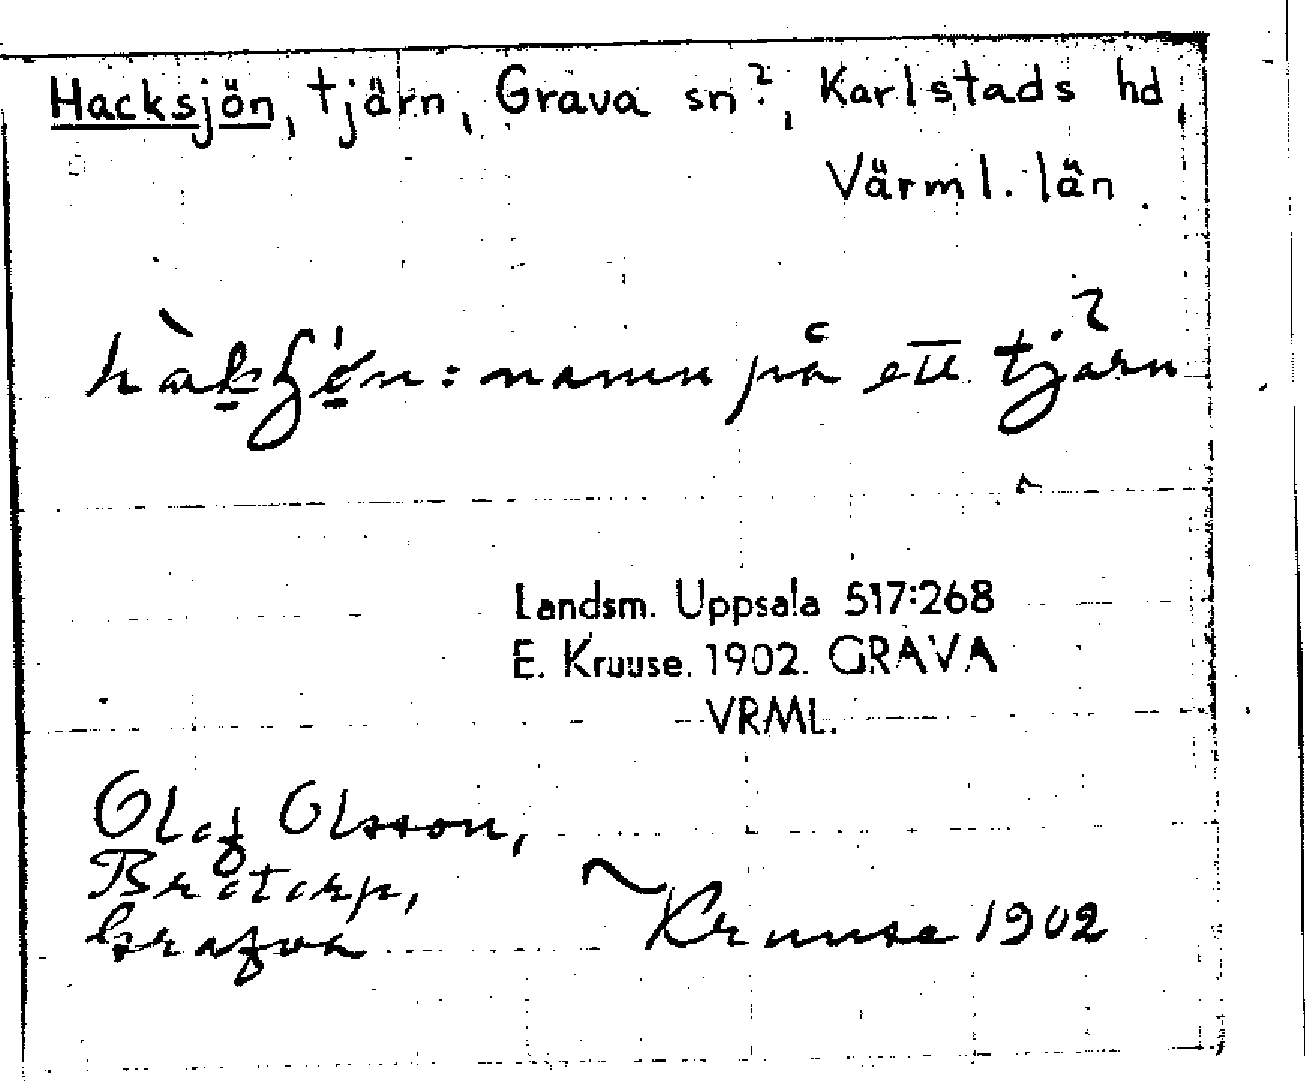 Hacksjön, tjärn, Grava sn?, Karlstads hd,
Värml. län
namn på ett tjärn
Landsm. Uppsala 517:268
E. Kruuse. 1902. GRAVA
VRML.
Olof Olsson,
Brotorp,
Grafva
Kruuse 1902